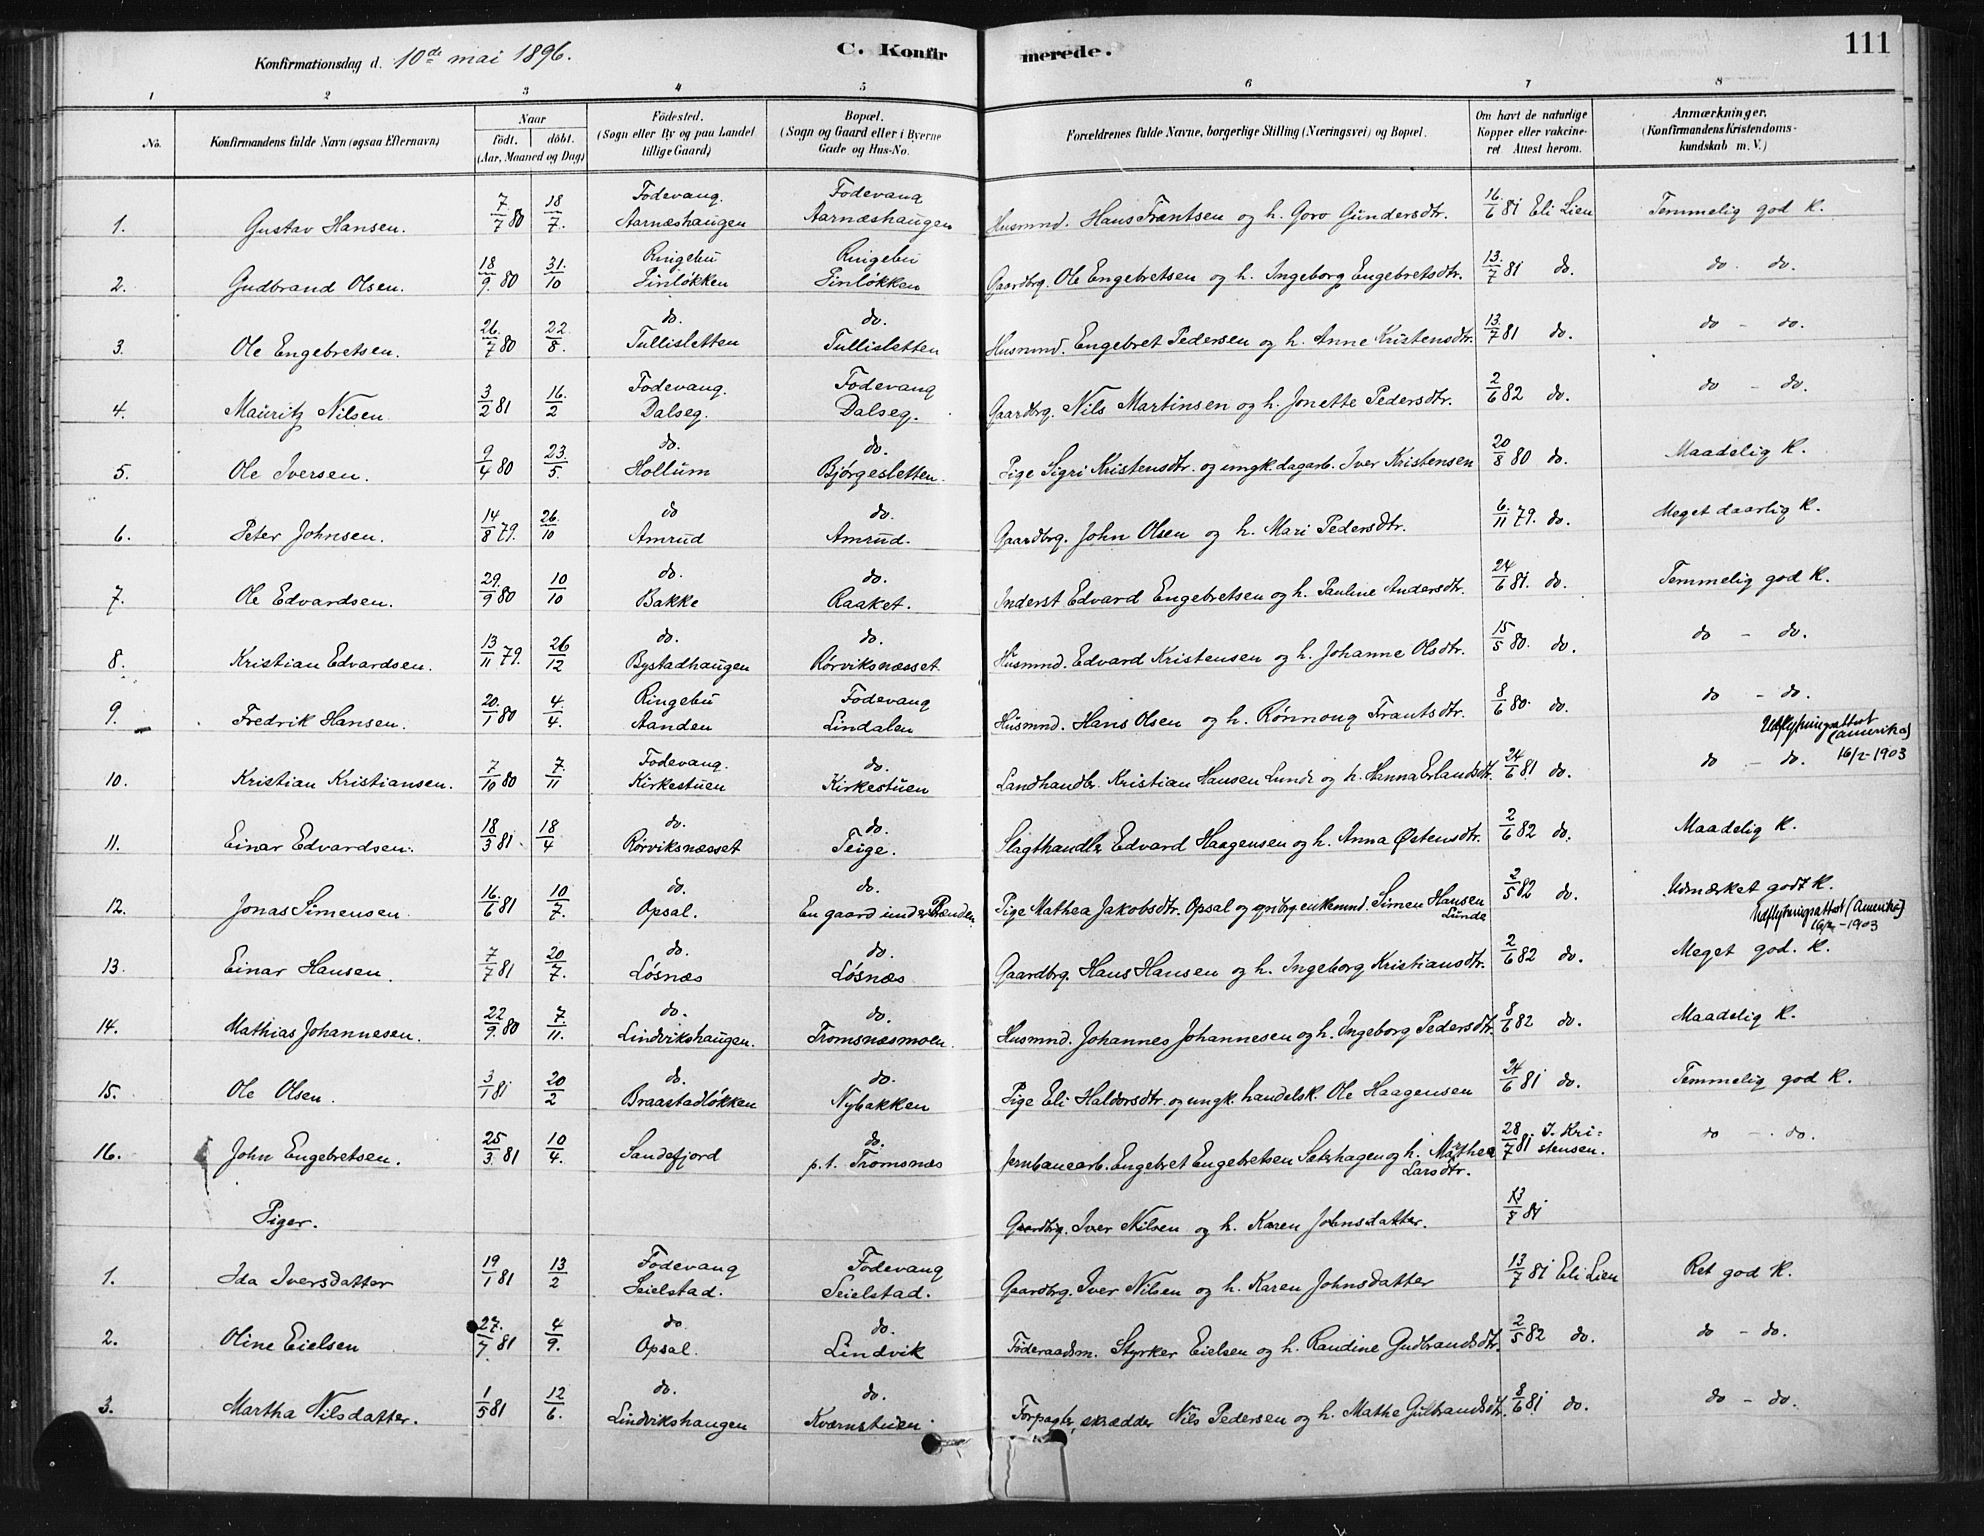 Konfirmationsdag d. 10de mai 1896. C. Konfirmerede. 111
1 2 3 4 5 6 7 8
No. Konfirmandens fulde Navn (ogsaa Efternavn) Naar födt. döbt. (Aar, Maaned og Dag) Födested. (Sogn eller By og paa Landet tillige Gaard) Bopæl. (Sogn og Gaard eller i Byerne Gade og Hus-No. Forældrenes fulde Navne, borgerlige Stilling (Næringsvei) og Bopæl. Om havt de naturlige Kopper eller vakcineret Attest herom. Anmærkninger. (Konfirmandens Kristendomskundskab m. V.)
1. Gustav Hansen. 7/7 80 18/7. Fodevang. Aarnæshaugen Fodevang Aarnæshaugen Husmnd. Hans Frantsen og h. Goro Gundersdtr. 16/6 81 Eli Lien Temmelig god K.
2. Gudbrand Olsen. 18/9. 80 31./10 Ringebu Linløkken Ringebu Linløkken Gaardbrg. Ole Engebretsen og h. Ingeborg Engebretsdtr. 13./7 81 do. do. do.
3. Ole Engebretsen. 26./7 80 22/8. do. Tullisletten do. Tullisletten Husmnd. Engebret Pedersen og h. Anne Kristensdtr. 13./7 81 do. do - do.
4. Mauritz Nilsen. 3/2 81 16./2 Fodevang. Dalseg. Fodevang Dalseg. Gaardbrg. Nils Martinsen og h. Jonette Pedersdtr. 2/6 82 do. do - do.
5. Ole Iversen. 9/4 80 23./5. do. Hollum do. Bjørgesletten. Pige Sigri Kristensdtr. og ungk. dagarb. Iver Kristensen 20/8 80 do. Maadelig K.
6. Peter Johnsen. 14/8 79. 26./10 do Amrud do. Amrud. Gaardbrg. John Olsen og h. Mari Pedersdtr. 6./11 79. do. Meget daarlig K.
7. Ole Edvardsen. 29./9 80 10/10 do. Bakke do. Raaket. Inderst Edvard Engebretsen og h. Pauline Andersdtr. 24/6 81. do. Temmelig god K.
8. Kristian Edvardsen. 13/11 79. 26/12 do. Bystadhaugen do. Rørviksnæsset Husmnd. Edvard Kristensen og h. Johanne Olsdtr. 15/5 80. do. do - do.
9. Fredrik Hansen. 20./1 80 4./4. Ringebu Aanden Fodevang Lindalen Husmnd. Hans Olsen og h. Rønnoug Frantsdtr. 8/6 80. do. do - do.
10. Kristian Kristiansen. 7/10 80 7./11 Fodevang. Kirkestuen do. Kirkestuen Landhandlr. Kristian Hansen Lunde og h. Hanna Erlandsdtr. 24/6 81 do. do - do. Udflytningsattest (Amerika) 16/2-1903
11. Einar Edvardsen. 18/3 81. 18/4 do. Rørviksnæsset do. Teige. Slagthandlr Edvard Haagensen og h. Anna Østensdtr. 2/6 82 do. Maadelig K.
12. Jonas Simensen. 16./6 81 10/7. do. Opsal. do. En gaard under Rænden. Pige Mathea Jakobsdtr. Opsal og grdbrg enkemnd. Simen Hansen Lunde 2/5 82 do. Udmærket godt K. Udflytningsattest (Amerika) 16/2-1903
13. Einar Hansen. 7/7 81 20/7. do. Løsnæs do. Løsnæs Gaardbrg. Hans Hansen og h. Ingeborg Kristiansdtr. 2/6 82 do. Meget god. K.
14. Mathias Johannesen. 22/9. 80 7./11. do. Lindvikshaugen. do. Tromsnæsmoen. Husmnd. Johannes Johannesen og h. Ingeborg Pedersdtr. 8/6 82 do. Maadelig K.
15. Ole Olsen. 3/1 81 20/2 do. Braastadløkken do. Nybakken Pige Eli Haldorsdtr. og ungk. handelsk. Ole Haagensen 24/6 81 do. Temmelig god K.
16. John Engebretsen. 25/3. 81 10/4. Sandefjord do. p.t. Tromsnæs Jernbanearb. Engebret Engebretsen Sæterhagen og h. Marthea Larsdtr. 28/7 81 J. Kristensen. do - do.
Piger. Gaardbrg. Iver Nilsen og h. Karen Johnsdatter. 13/7 81
1. Ida Iversdatter 19/1 81 13/2 Fodevang Seielstad. Fodevang Seielstad. Gaardbrg. Iver Nilsen og h. Karen Johnsdatter 13/7 81 Eli Lien Ret god K.
2. Oline Eielsen 27./7. 81 4/9. do Opsal. do. Lindvik Føderaadsm. Styrker Eielsen og h. Randine Gudbrandsdtr. 2/5 82 do. do - do.
3. Martha Nilsdatter. 1/5 81 12/6. do. Lindvikshaugen do. Kværnstuen Forpagtr, skrædder Nils Pedersen og h. Mathe Gulbrandsdtr. 8/6 81 do. do - do.